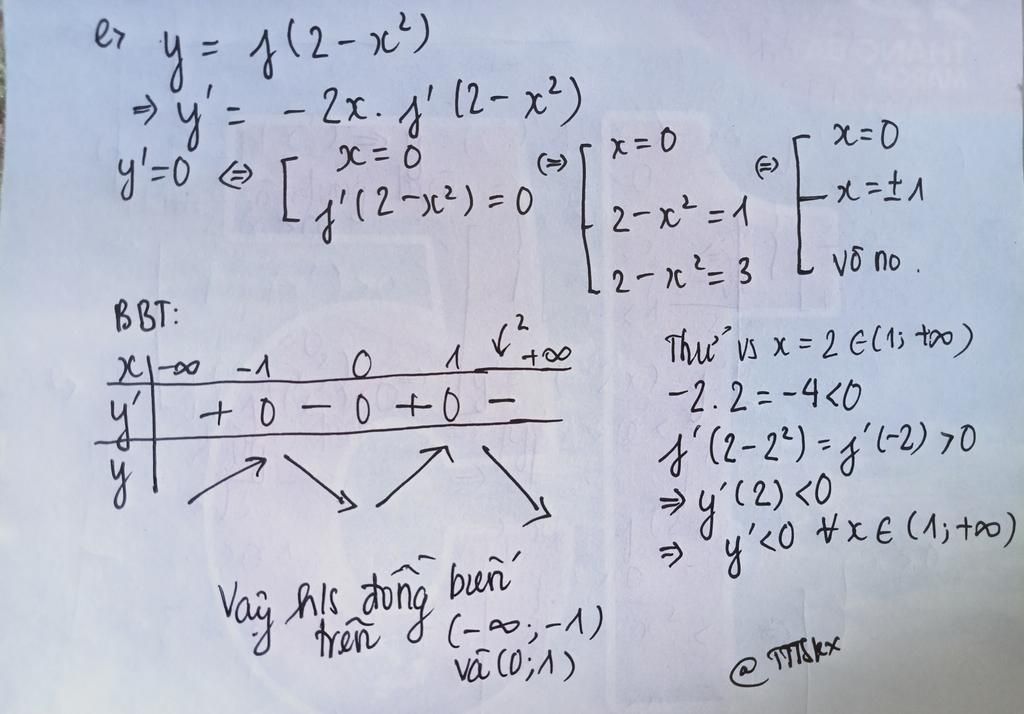 e, y = f(2 - x²)
⇒ y' = - 2x. f'(2 - x²)
y'=0 ⇔ [ x = 0 (⇒) [ x = 0 (⇒) [ x=0
f'(2-x²) = 0 2 - x² = 1 x = ±1
2 - x² = 3 vô no.
BBT:
x -∞ -1 0 1 2 +∞
y' + 0 - 0 + 0 -
y ↗ ↘ ↗ ↘
Thử vs x = 2 ∈ (1; +∞)
-2.2 = -4<0
f'(2-2²) = f'(-2) >0
⇒ y'(2) <0
⇒ y'<0 ∀x ∈ (1; +∞)
Vậy h/s đồng biến
trên (-∞; -1)
và (0; 1)